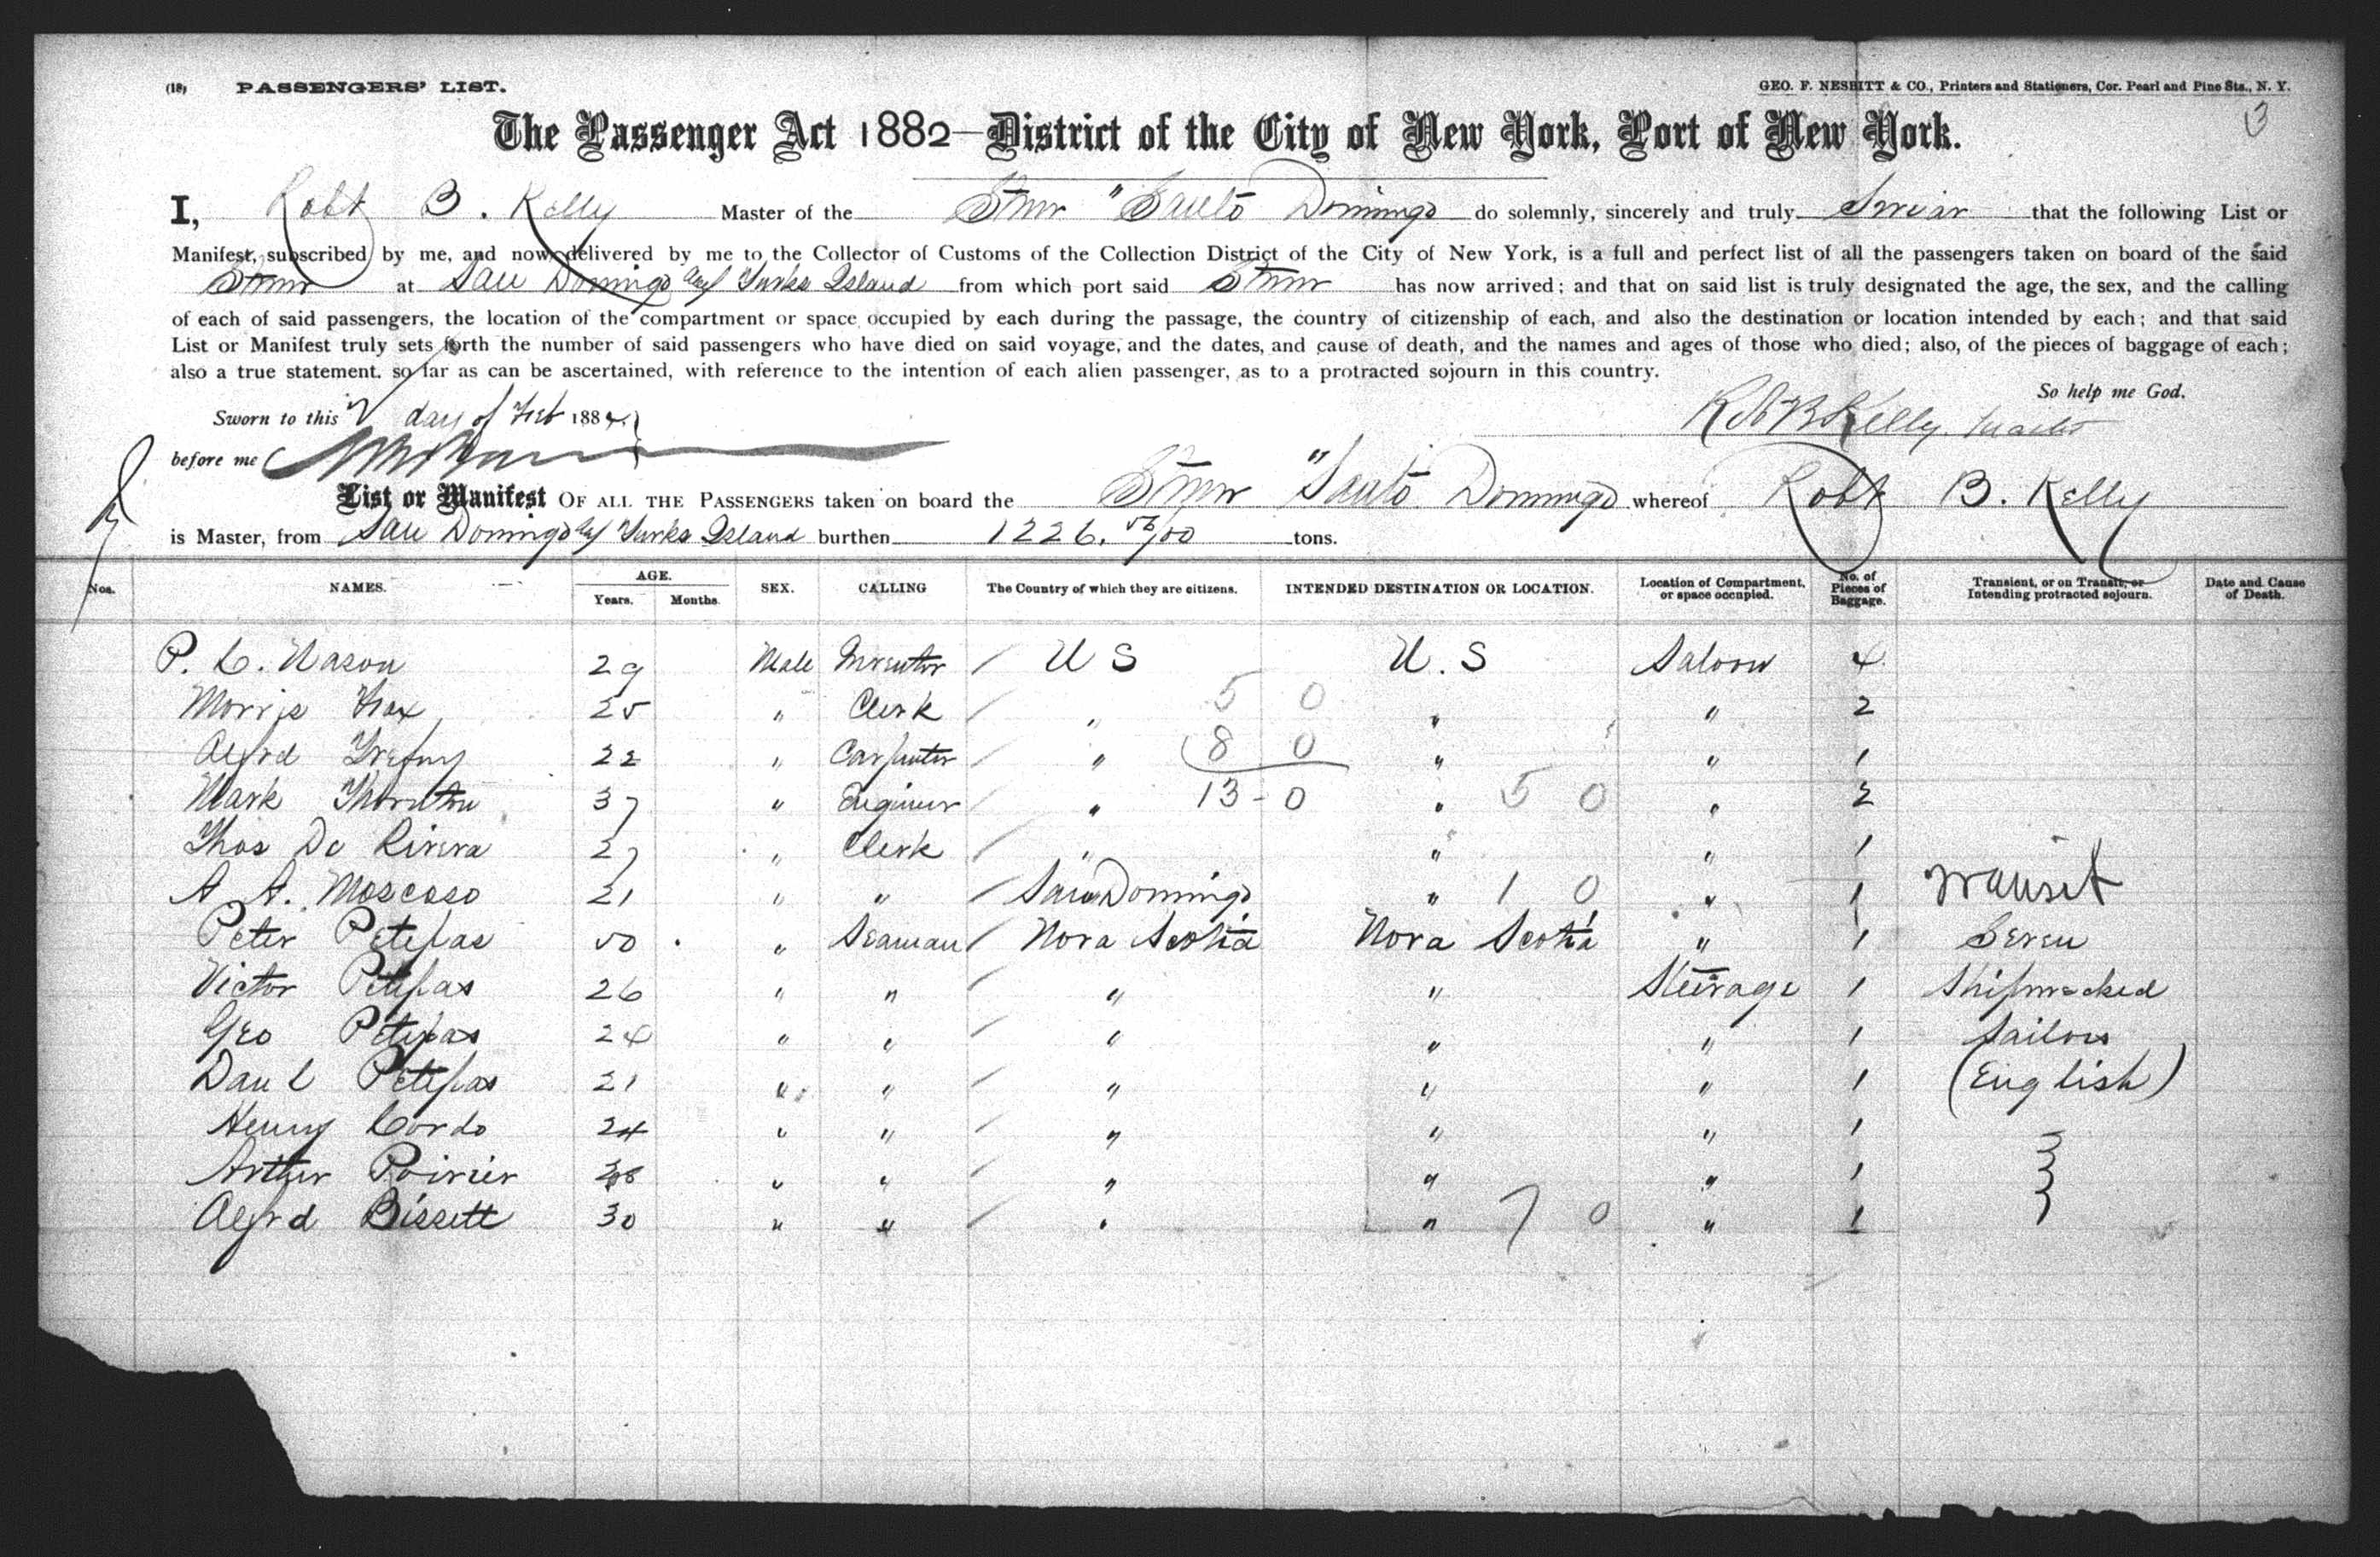 (18) PASSENGERS' LIST. GEO. F. NESBITT & CO., Printers and Stationers, Cor. Pearl and Pine Sts., N. Y.
3
The Passenger Act 1882—District of the City of New York, Port of New York.
I, Robt B. Kelly Master of the Stmr "Santo Domingo do solemnly, sincerely and truly Swear that the following List or
Manifest, subscribed by me, and now delivered by me to the Collector of Customs of the Collection District of the City of New York, is a full and perfect list of all the passengers taken on board of the said
Stmr at San Domingo Turks Island from which port said Stmr has now arrived; and that on said list is truly designated the age, the sex, and the calling
of each of said passengers, the location of the compartment or space occupied by each during the passage, the country of citizenship of each, and also the destination or location intended by each; and that said
List or Manifest truly sets forth the number of said passengers who have died on said voyage, and the dates, and cause of death, and the names and ages of those who died; also, of the pieces of baggage of each;
also a true statement. so far as can be ascertained, with reference to the intention of each alien passenger, as to a protracted sojourn in this country.
So help me God.
Sworn to this day of Feb 188
Robt B Kelly
before me
List or Manifest OF ALL THE PASSENGERS taken on board the Stmr "Santo Domingo whereof Robt B. Kelly
is Master, from San Domingo Turks Island burthen 1226. 56/100 tons.
Nos. NAMES. AGE. Years. Months. SEX. CALLING The Country of which they are citizens. INTENDED DESTINATION OR LOCATION. Location of Compartment, or space occupied. No. of Pieces of Baggage. Transient, or on Transit, or Intending protracted sojourn. Date and Cause of Death.
P. C. Nason 29 Male Inventor / U S U. S Saloon 4
Morris Fox 25 " Clerk / " 5 0 " " 2
Alfrd 22 " Carpenter / " 8 0 " " 1
Mark Thornton 37 " Engineer / " 13-0 " 5 0 " 2
Thos De Rivera 27 " Clerk / " " " 1
A. A. Moscoso 21 " " / San Domingo " 1 0 " 1 transit
Peter Petipas 50 " Seaman / Nova Scotia Nova Scotia " 1 Seven
Victor Petipas 26 " " / " " Steerage 1 Shipwrecked
Geo Petipas 24 " " / " " " 1 Sailors
Danl Petipas 21 " " / " " " 1 (English)
Henry Cordo 24 " " / " " " 1
Arthur Poirier " " / " " " 1
Alfrd Bissett 30 " " / " " 7 0 " 1